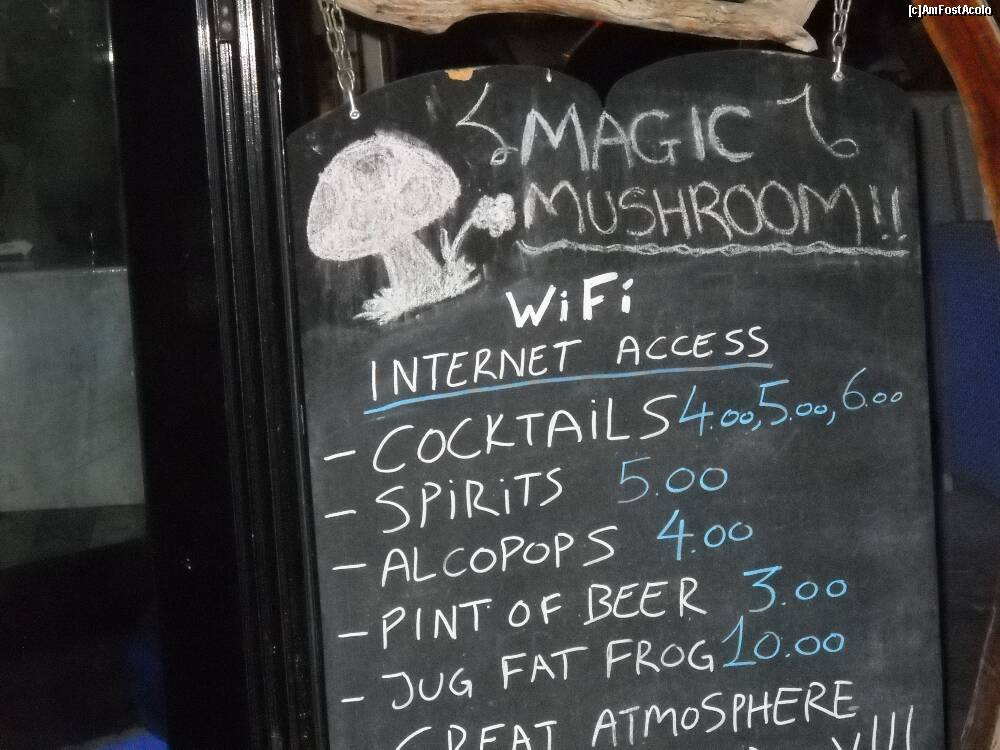 [c]AmFostAcolo
MAGIC
MUSHROOM!!
WiFi
INTERNET ACCESS
- COCKTAiLS 4.00, 5.00, 6.00
- SPiRiTS 5.00
- ALCOPOPS 4.00
- PINT OF BEER 3.00
- JUG FAT FROG 10.00
GREAT ATMOSPHERE